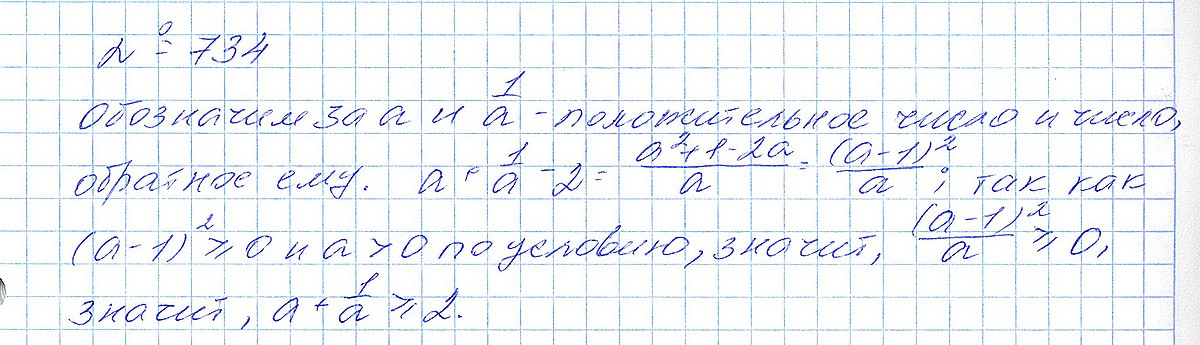 № 734
Обозначим за a и 1/a - положительное число и число,
обратное ему. a + 1/a - 2 = (a²+1-2a)/a = (a-1)²/a ; так как
(a-1)² ≥ 0 и a > 0 по условию, значит, (a-1)²/a ≥ 0,
значит, a + 1/a ≥ 2.